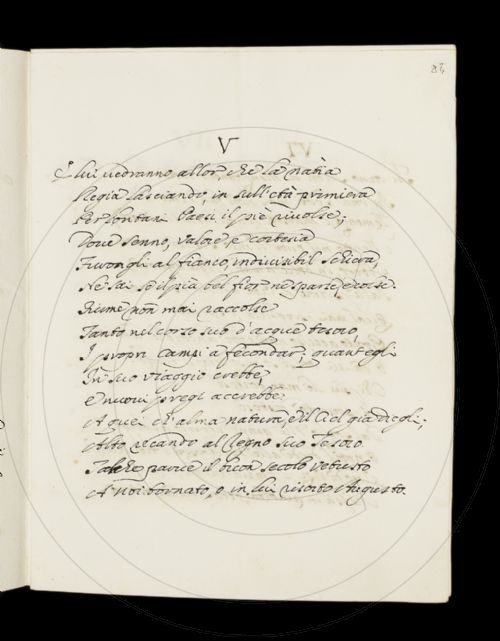 84
V
E lui vedranno allor che la natìa
Regia lasciando, in sull'età primiera
Per lontani Paesi il piè rivolse;
Dove senno, valore, e cortesia
Furongli al fianco, indivisibil schiera,
Ne lai se il più bel fior ne sparse, e colse.
Fiume non mai raccolse
Tanto nel corso suo d'acque tesoro,
I propri campi a fecondar; quant'egli
In suo viaggio crebbe,
E nuovi pregi accrebbe
A quei ch'alma natura, e il Ciel già diegli;
Alto recando al Regno suo Tesoro
Talchè parve il buon secolo vetusto
A noi tornato, o in lui risorto Augusto.